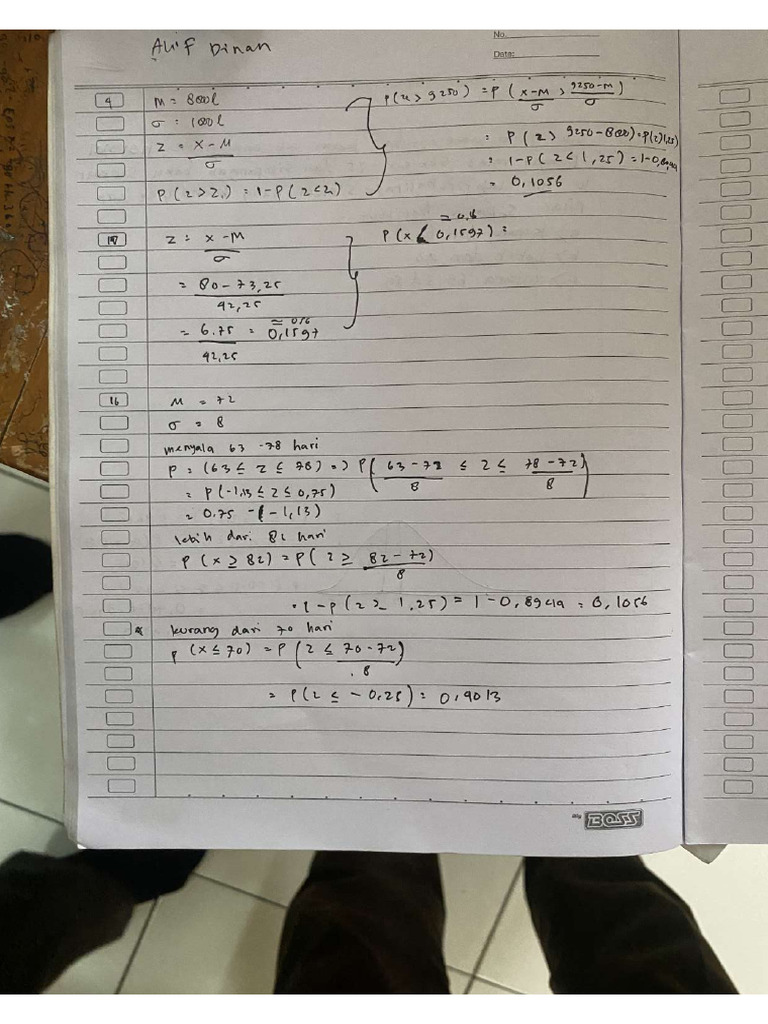 Alif Dinan
No.
Date:
4
M = 8000l
σ : 1000l
z = x - M
σ
P(z > z₁) = 1 - P(z < z₁)
P(z > 9250) = P( x-M > 9250-M )
σ σ
= P(z > 9250 - 8000) = P(z > 1,25)
= 1 - P(z < 1,25) = 1 - 0,8944
= 0,1056
17
z = x - M
σ
= 80 - 73,25
42,25
= 6.75 = 0,1597
≈ 0,16
42,25
≈ 0,16
P(x < 0,1597) =
16
M = 72
σ = 8
menyala 63 - 78 hari
P = (63 ≤ z ≤ 78) => P( 63 - 72 ≤ z ≤ 78 - 72 )
8 8
= P(-1,13 ≤ z ≤ 0,75)
= 0.75 - (-1,13)
lebih dari 82 hari
P(x ≥ 82) = P( z ≥ 82 - 72 )
8
= 1 - P(z ≥ 1,25) = 1 - 0,8944 = 0,1056
kurang dari 70 hari
P(x ≤ 70) = P( z ≤ 70 - 72 )
8
= P(z ≤ -0,25) = 0,4013
BOSS